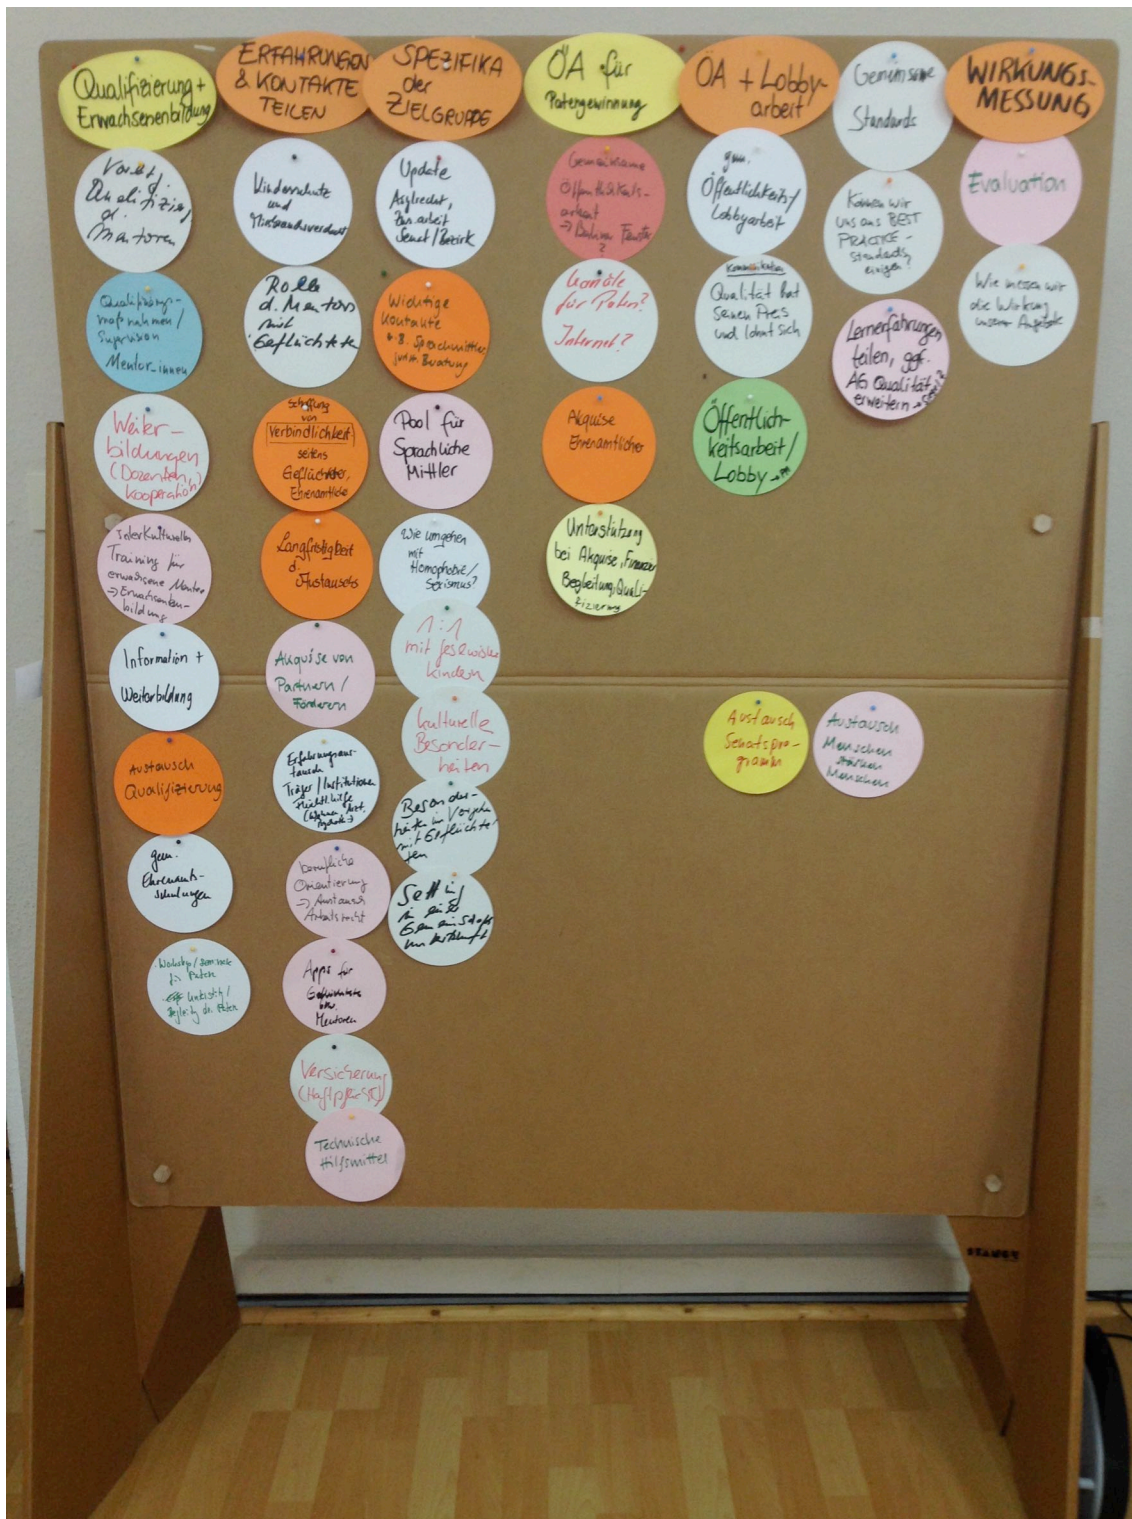 Qualifizierung +
Erwachsenenbildung
Qualifizierungs-
maßnahmen /
Supervision
Mentor_innen
Weiter-
bildungen
(Dozenten,
Kooperation)
Interkulturelles
Training für
erwachsene Mentor
→ Erwachsenen-
bildung
Information +
Weiterbildung
Austausch
Qualifizierung
gem.
Ehrenamts-
schulungen
für Paten
ERFAHRUNGEN
& KONTAKTE
TEILEN
Kinderschutz
und
Rolle
d. Mentors
mit
Geflüchteten
Schaffung
von
Verbindlichkeit
seitens
Geflüchteter,
Ehrenamtliche
Langfristigkeit
d.
Austauschs
Akquise von
Partnern /
Förderern
Erfahrungsaus-
tausch
Träger / Institutionen
berufliche
Orientierung
→ Austausch
Arbeitsrecht
Apps für
Geflüchtete
bzw.
Mentoren
Versicherung
(Haftpflicht)
Technische
Hilfsmittel
SPEZIFIKA
der
ZIELGRUPPE
Update
Asylrecht,
Zus.arbeit
Senat / Bezirk
Wichtige
Kontakte
z.B. Sprachmittler,
jurist. Beratung
Pool für
Sprachliche
Mittler
Wie umgehen
mit
Homophobie /
Sexismus?
1:1
mit
kindern
kulturelle
Besonder-
heiten
Besonder-
heiten im Vorgehen
mit Geflüchte-
ten
Setting
in einer
Gemeinschafts
unterkunft
ÖA für
Patengewinnung
Gemeinsame
Öffentlichkeits-
arbeit
→
?
Kanäle
für Paten?
Internet?
Akquise
Ehrenamtlicher
Unterstützung
bei Akquise, Finanzen
Begleitung, Quali-
fizierung
ÖA + Lobby-
arbeit
gem.
Öffentlichkeits /
Lobbyarbeit
Kommunikation
Qualität hat
seinen Preis
und lohnt sich
Öffentlich-
keitsarbeit /
Lobby →
Austausch
Senatspro-
gramm
Gemeinsame
Standards
Können wir
uns auf BEST
PRACTICE-
standards
einigen?
Lernerfahrungen
teilen, ggf.
AG Qualität
erweitern →
Austausch
Menschen
stärken
Menschen
WIRKUNGS-
MESSUNG
Evaluation
Wie messen wir
die Wirkung
unserer Angebote